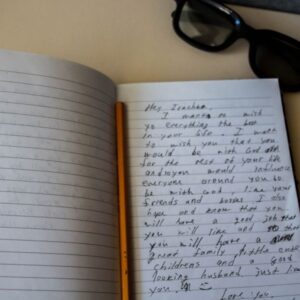 Hey Teacher,
I want to wish
yo everything the best
in your life. I want
to wish you that you
would be with God
for the rest of your life
and you would influence
everyone around you to
be with God, like your
friends and boss. I also
hope and know that you
will have a good job that
you will like and
you will have a
great family, little
childrens and good
looking husband just like
you.
Love you.